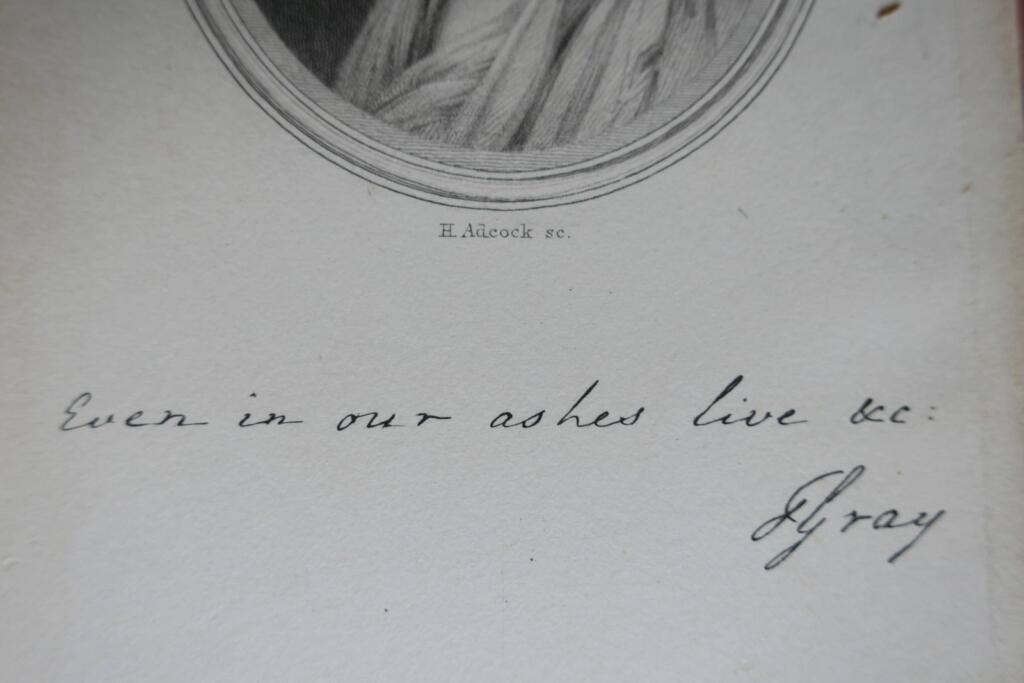 H. Adcock sc.
Even in our ashes live &c:
TGray